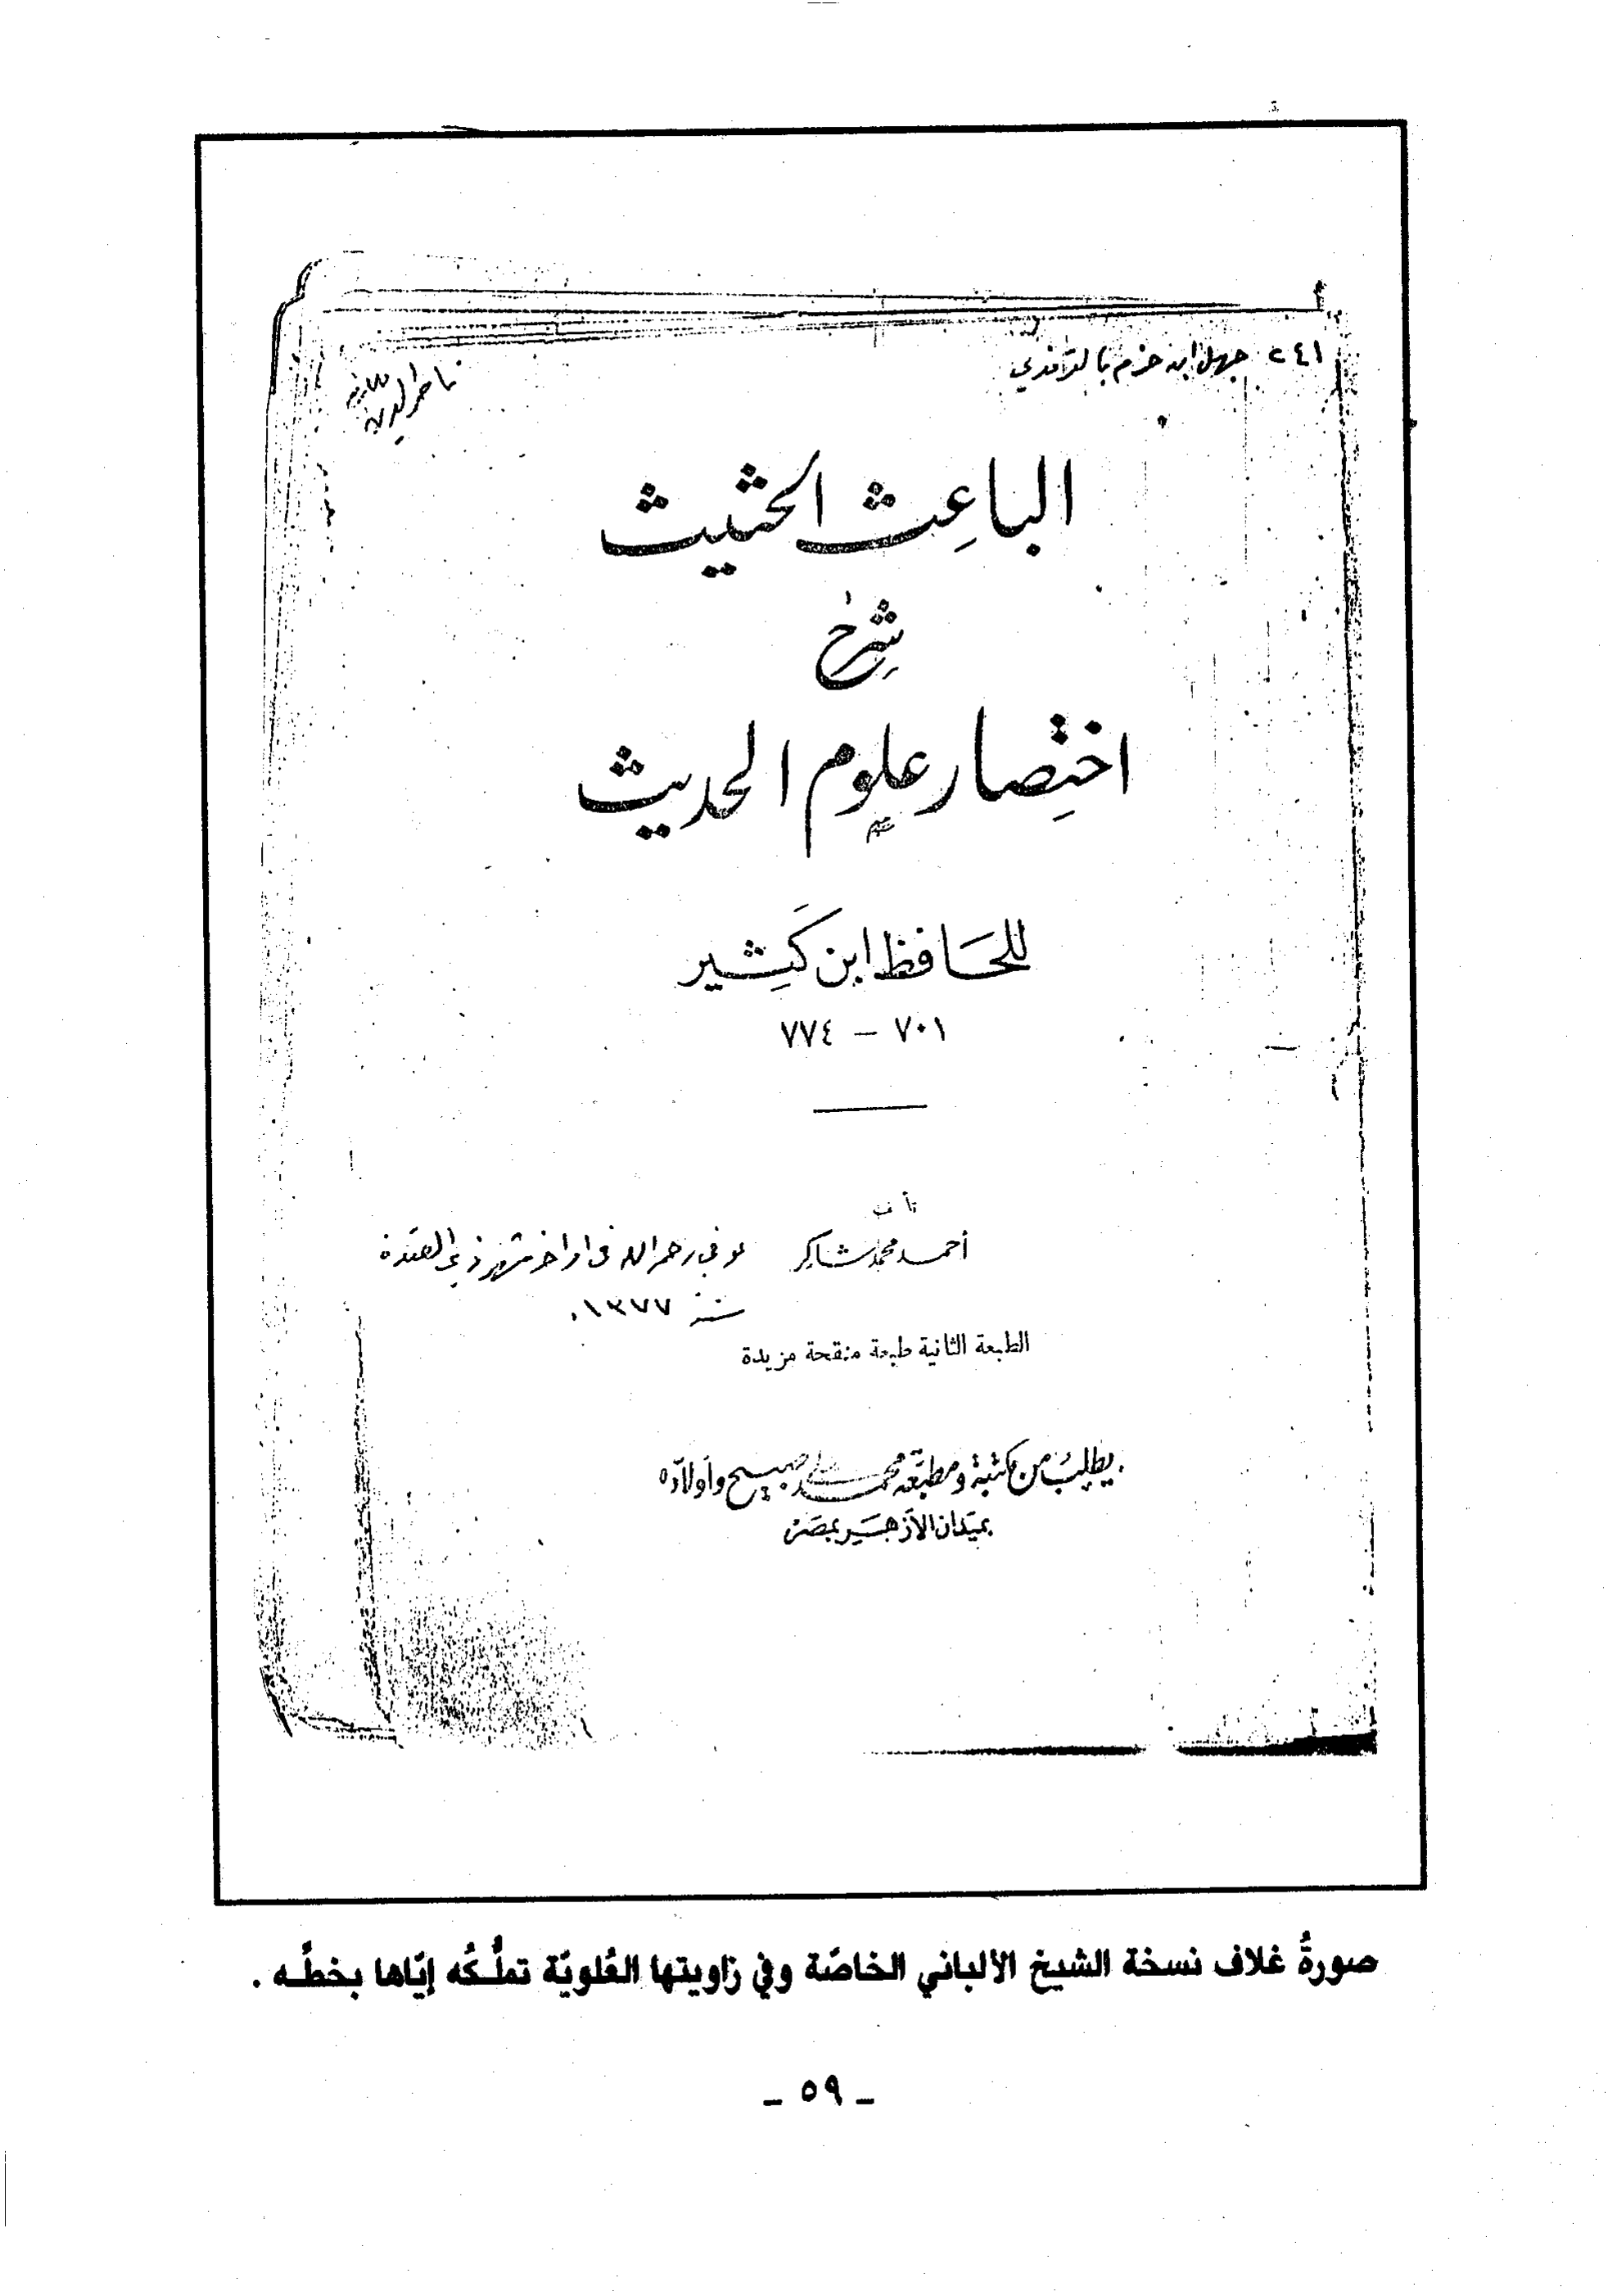 ٢٤١ جهل ابن حزم بالترمذي
ناصر الدين
الباعِث الحثيث
شرح
اختِصار علوم الحديث
للحَافظ ابن كَثِير
٧٠١ – ٧٧٤
أحمد محمد شاكر توفي رحمه الله في اواخر شهر ذي القعدة
سنة ١٣٧٧.
الطبعة الثانية طبعة منقحة مزيدة
يطلب من مكتبة ومطبعة محمد علي صبيح وأولاده
بميدان الأزهر بمصر
صورةُ غلاف نسخة الشيخ الألباني الخاصّة وفي زاويتها العُلويّة تملُّكُه إيّاها بخطِّه .
– ٥٩ –